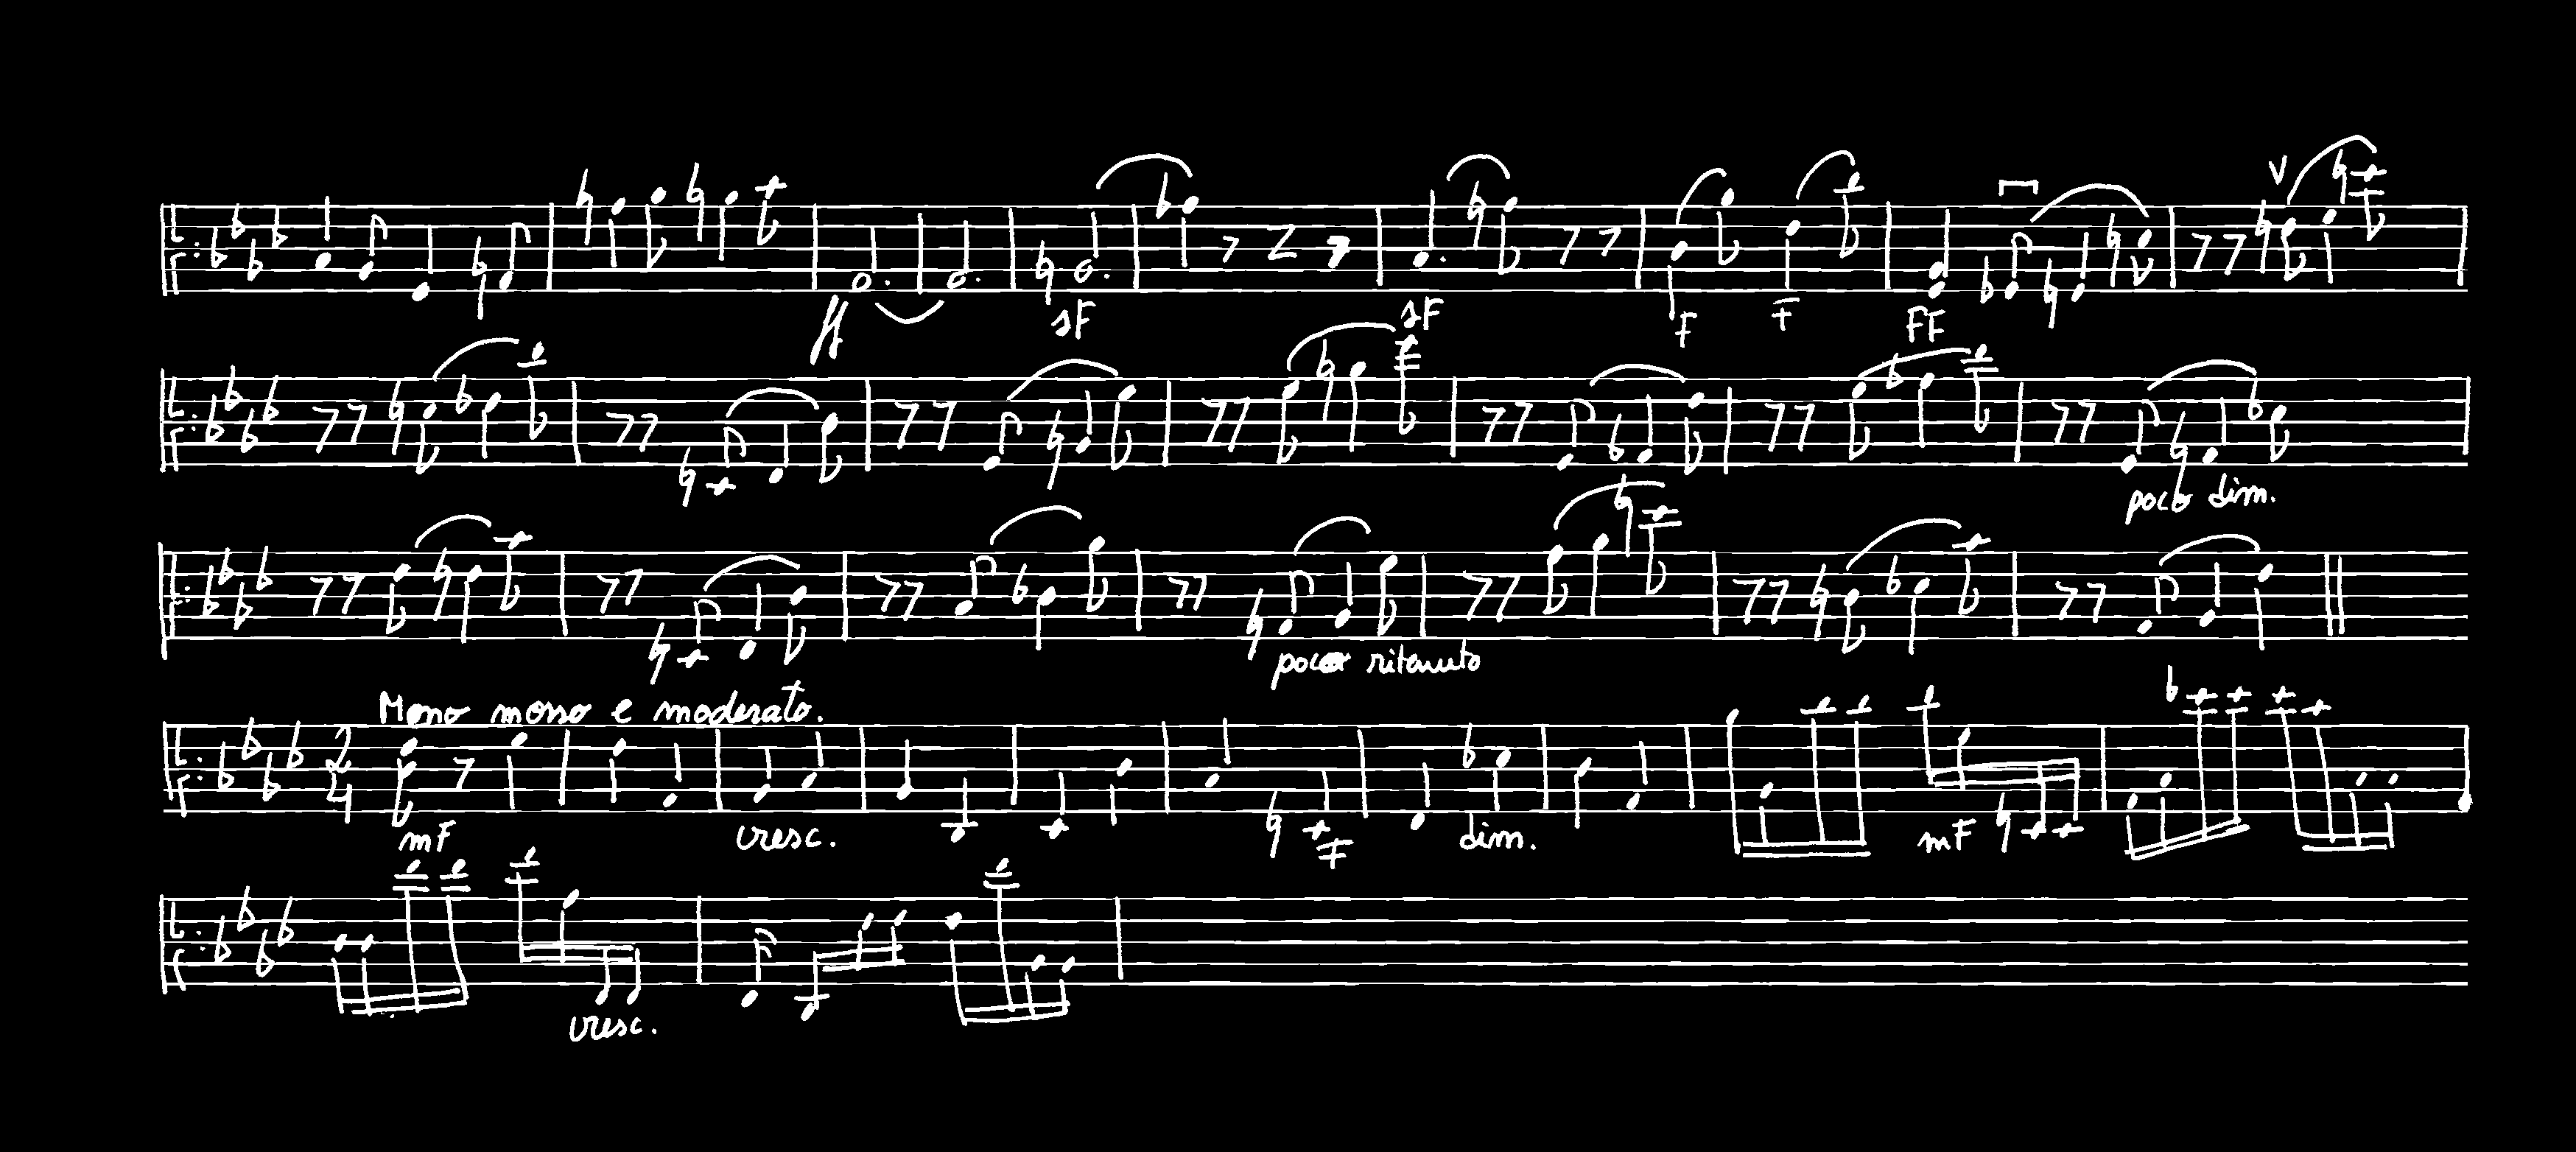 ff sF sF F F FF V
poco dim.
poco ritenuto
Meno mosso e moderato.
2/4
mF cresc. F dim. mF
cresc.